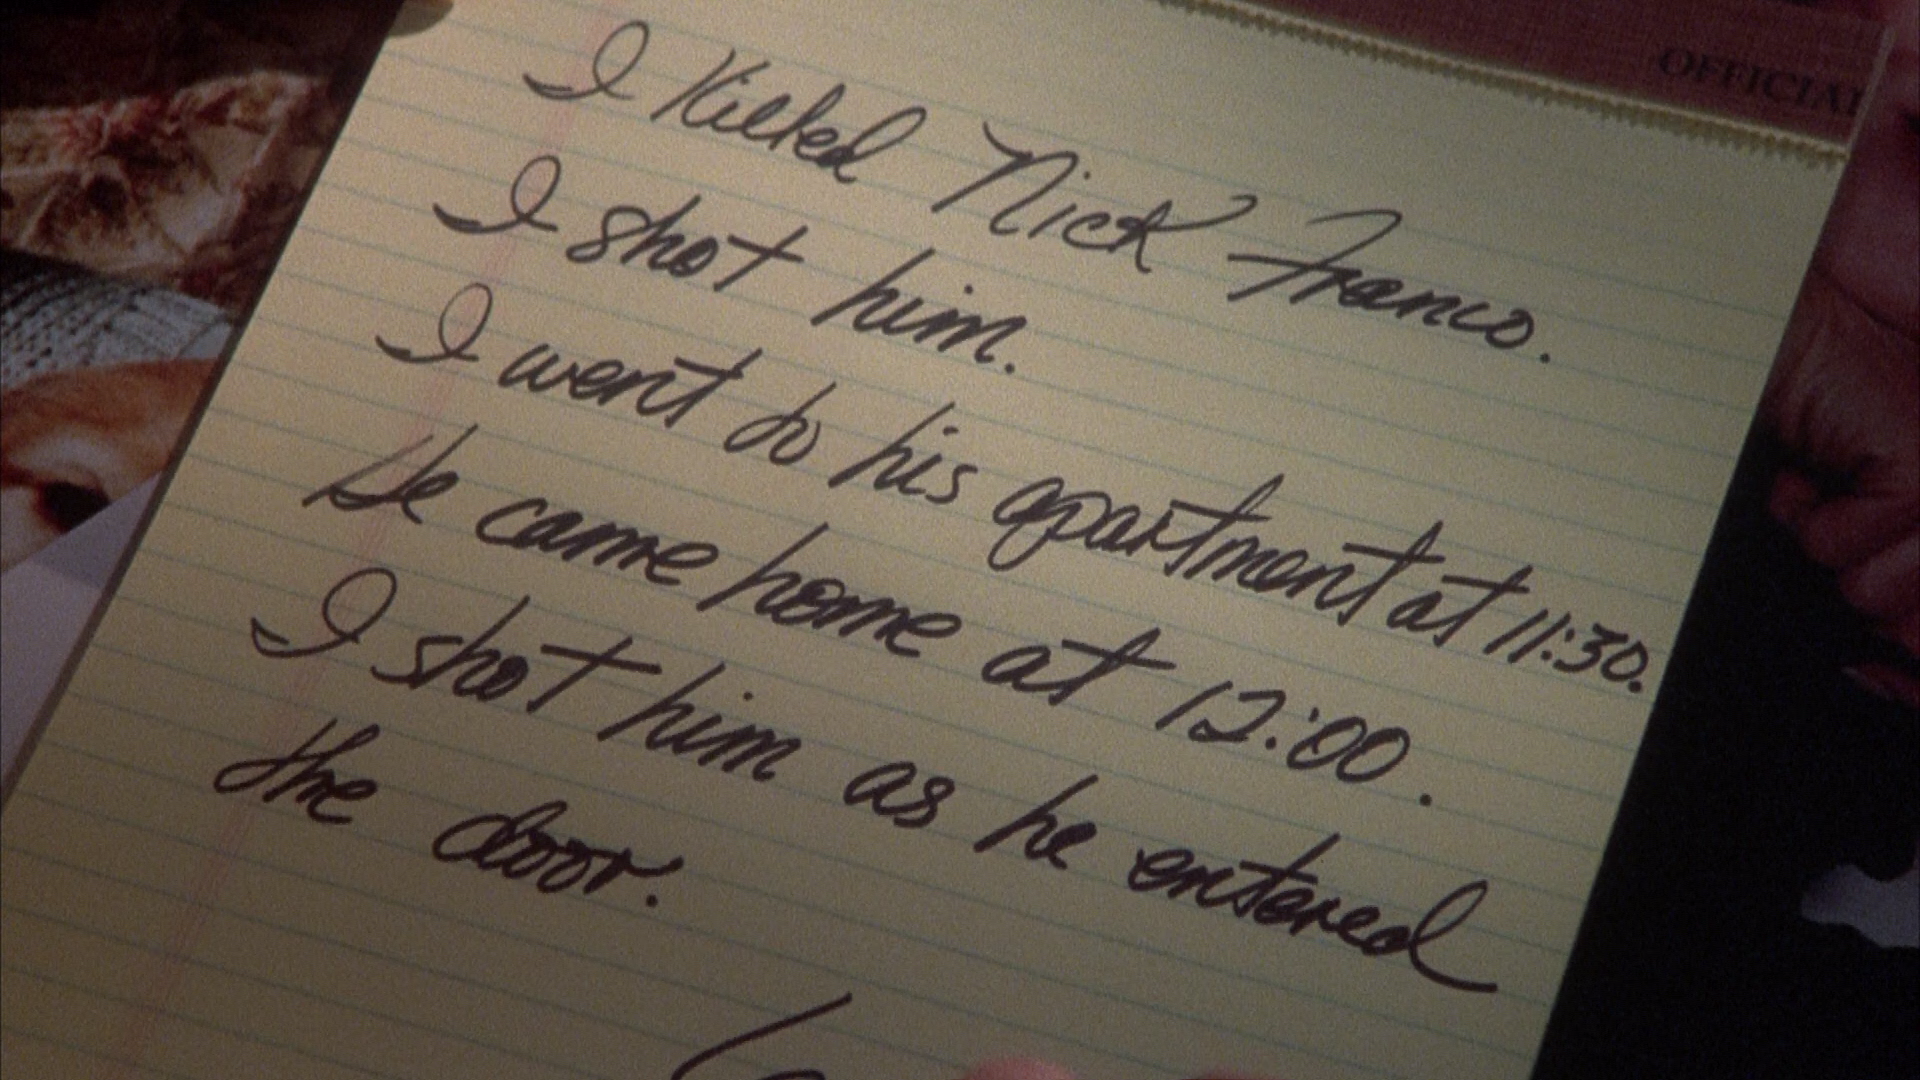 OFFICIAL
I Killed Nick Franco.
I shot him.
I went to his apartment at 11:30.
He came home at 12:00.
I shot him as he entered
the door.